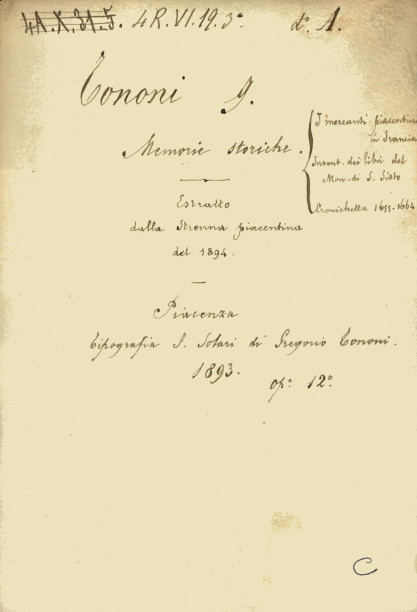 4A.X.31.5. 4R.VI.19.3° d° 1.
Tononi G.
Memorie storiche.
I mercanti piacentini
in Francia
Invent. dei libri del
Mon. di S. Sisto
Cronichetta 1655-1664
Estratto
dalla Strenna piacentina
del 1894.
Piacenza
Tipografia F. Solari di Gregorio Tononi.
1893.
op° 12°.
C